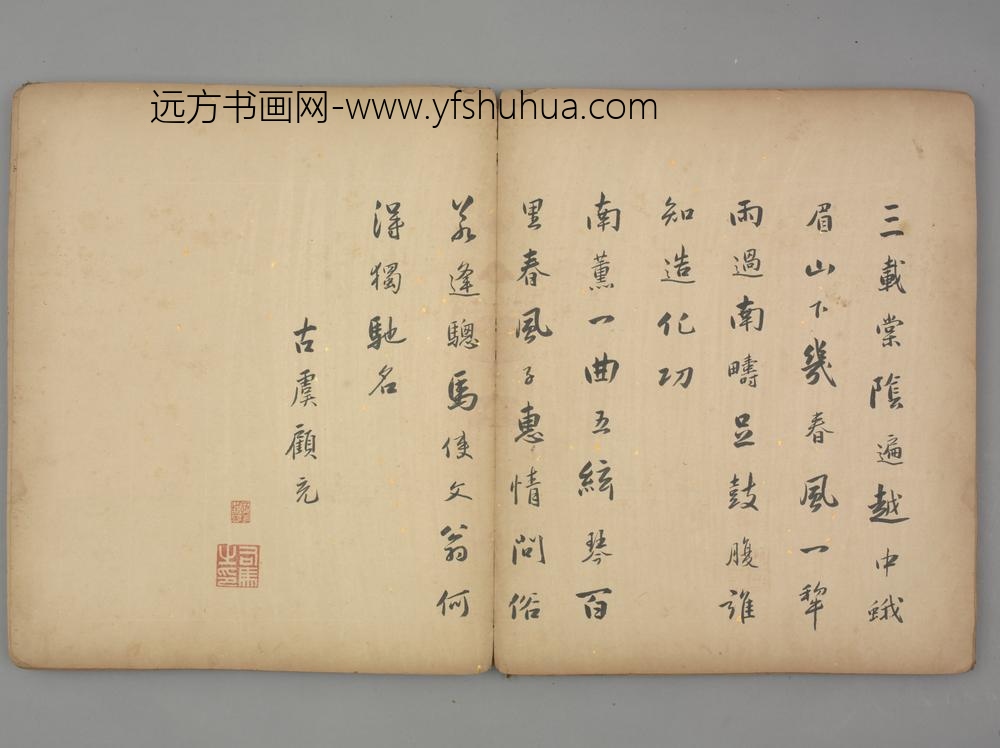 远方书画网-www.yfshuhua.com
三載棠陰遍越中蛾
眉山下幾春風一犂
雨過南疇足鼓腹誰
知造化功
南薰一曲五絃琴百
里春風子惠情問俗
若逢驄馬使文翁何
得獨馳名
古虞顧充
司馬之印